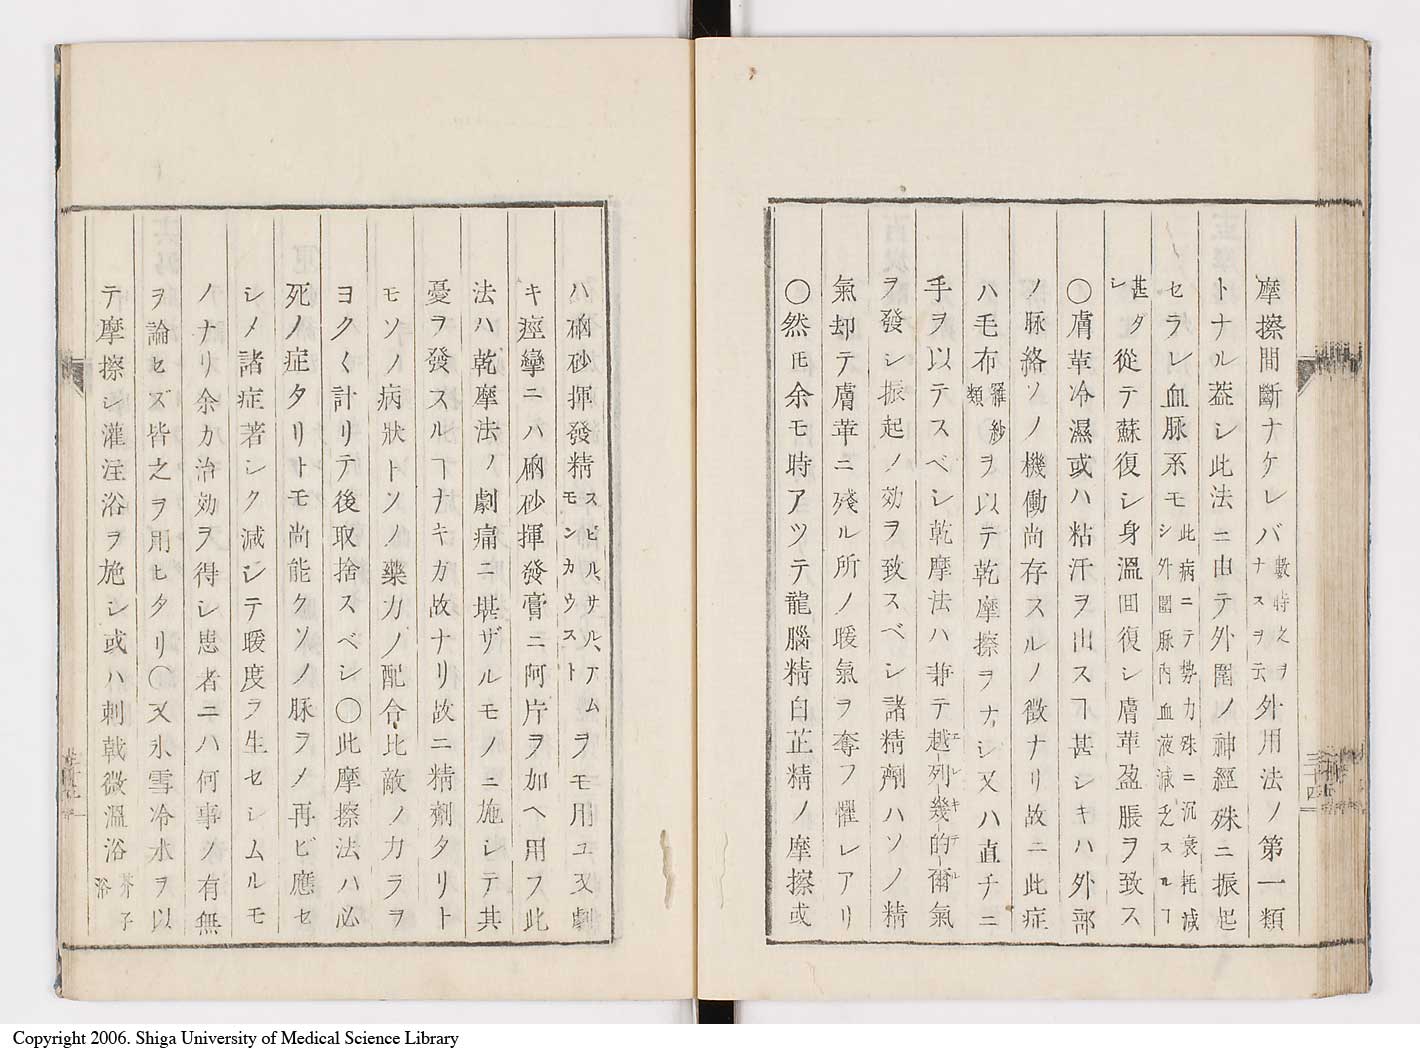 摩擦間斷ナケレバ數時之ヲナスヲ云外用法ノ第一類
トナル葢シ此法ニ由テ外圍ノ神經殊ニ振起
セラレ血脉系モ此病ニテ勢力殊ニ沉衰耗減シ外圍脉内血液減乏スルヿ
甚シタ從テ蘇復シ身溫囬復シ膚革盈脹ヲ致ス
〇膚革冷濕或ハ粘汗ヲ出スヿ甚シキハ外部
ノ脉絡ソノ機働尚存スルノ徴ナリ故ニ此症
ハ毛布羅紗類ヲ以テ乾摩擦ヲナシ又ハ直チニ
手ヲ以テスベシ乾摩法ハ兼テ越列幾的爾氣
ヲ發シ振起ノ効ヲ致スベシ諸精劑ハソノ精
氣却テ膚革ニ殘ル所ノ暖氣ヲ奪フ懼レアリ
〇然𪜈余モ時アツテ龍腦精白芷精ノ摩擦或
ハ硇砂揮發精スピルサルアムモンカウストヲモ用ユ又劇
キ痙攣ニハ硇砂揮發膏ニ阿片ヲ加ヘ用フ此
法ハ乾摩法ノ劇痛ニ堪ザルモノニ施シテ其
憂ヲ發スルヿナキガ故ナリ故ニ精劑タリト
モソノ病狀トソノ藥力ノ配合比敵ノカラヲ
ヨク〱計リテ後取捨スベシ〇此摩擦法ハ必
死ノ症タリトモ尚能クソノ脉ヲメ再ビ應セ
シメ諸症著シク減シテ暖度ヲ生セシムルモ
ノナリ余カ治効ヲ得シ患者ニハ何事ノ有無
ヲ論セズ皆之ヲ用ヒタリ〇又氷雪冷水ヲ以
テ摩擦シ灌注浴ヲ施シ或ハ刺戟微溫浴芥子浴
三十四
Copyright 2006. Shiga University of Medical Science Library